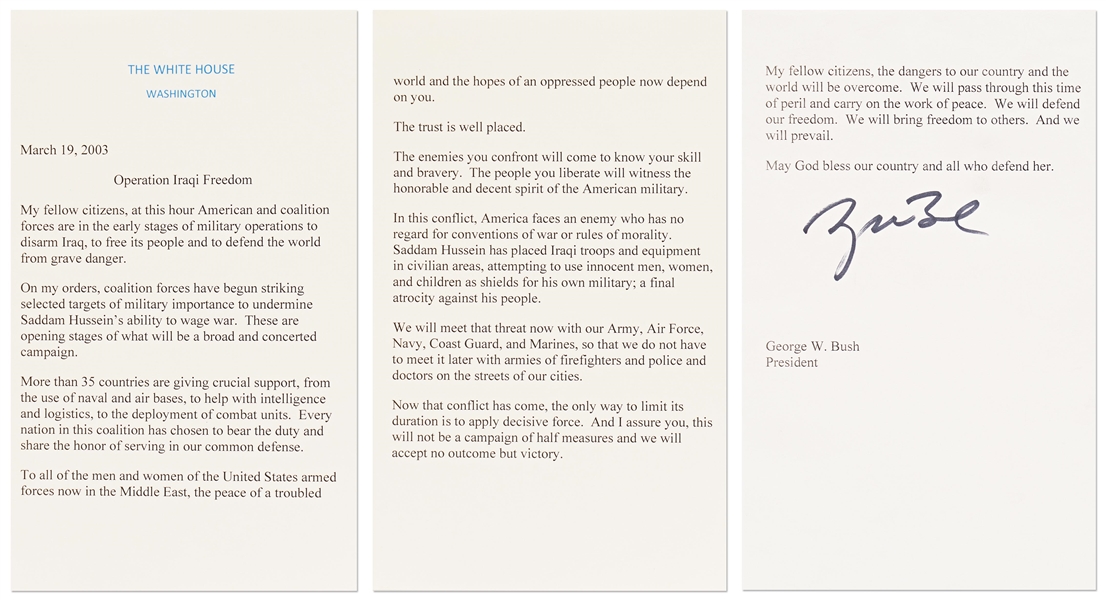 THE WHITE HOUSE
WASHINGTON
March 19, 2003
Operation Iraqi Freedom
My fellow citizens, at this hour American and coalition
forces are in the early stages of military operations to
disarm Iraq, to free its people and to defend the world
from grave danger.
On my orders, coalition forces have begun striking
selected targets of military importance to undermine
Saddam Hussein's ability to wage war.  These are
opening stages of what will be a broad and concerted
campaign.
More than 35 countries are giving crucial support, from
the use of naval and air bases, to help with intelligence
and logistics, to the deployment of combat units.  Every
nation in this coalition has chosen to bear the duty and
share the honor of serving in our common defense.
To all of the men and women of the United States armed
forces now in the Middle East, the peace of a troubled
world and the hopes of an oppressed people now depend
on you.
The trust is well placed.
The enemies you confront will come to know your skill
and bravery.  The people you liberate will witness the
honorable and decent spirit of the American military.
In this conflict, America faces an enemy who has no
regard for conventions of war or rules of morality.
Saddam Hussein has placed Iraqi troops and equipment
in civilian areas, attempting to use innocent men, women,
and children as shields for his own military; a final
atrocity against his people.
We will meet that threat now with our Army, Air Force,
Navy, Coast Guard, and Marines, so that we do not have
to meet it later with armies of firefighters and police and
doctors on the streets of our cities.
Now that conflict has come, the only way to limit its
duration is to apply decisive force.  And I assure you, this
will not be a campaign of half measures and we will
accept no outcome but victory.
My fellow citizens, the dangers to our country and the
world will be overcome.  We will pass through this time
of peril and carry on the work of peace.  We will defend
our freedom.  We will bring freedom to others.  And we
will prevail.
May God bless our country and all who defend her.
George W. Bush
President